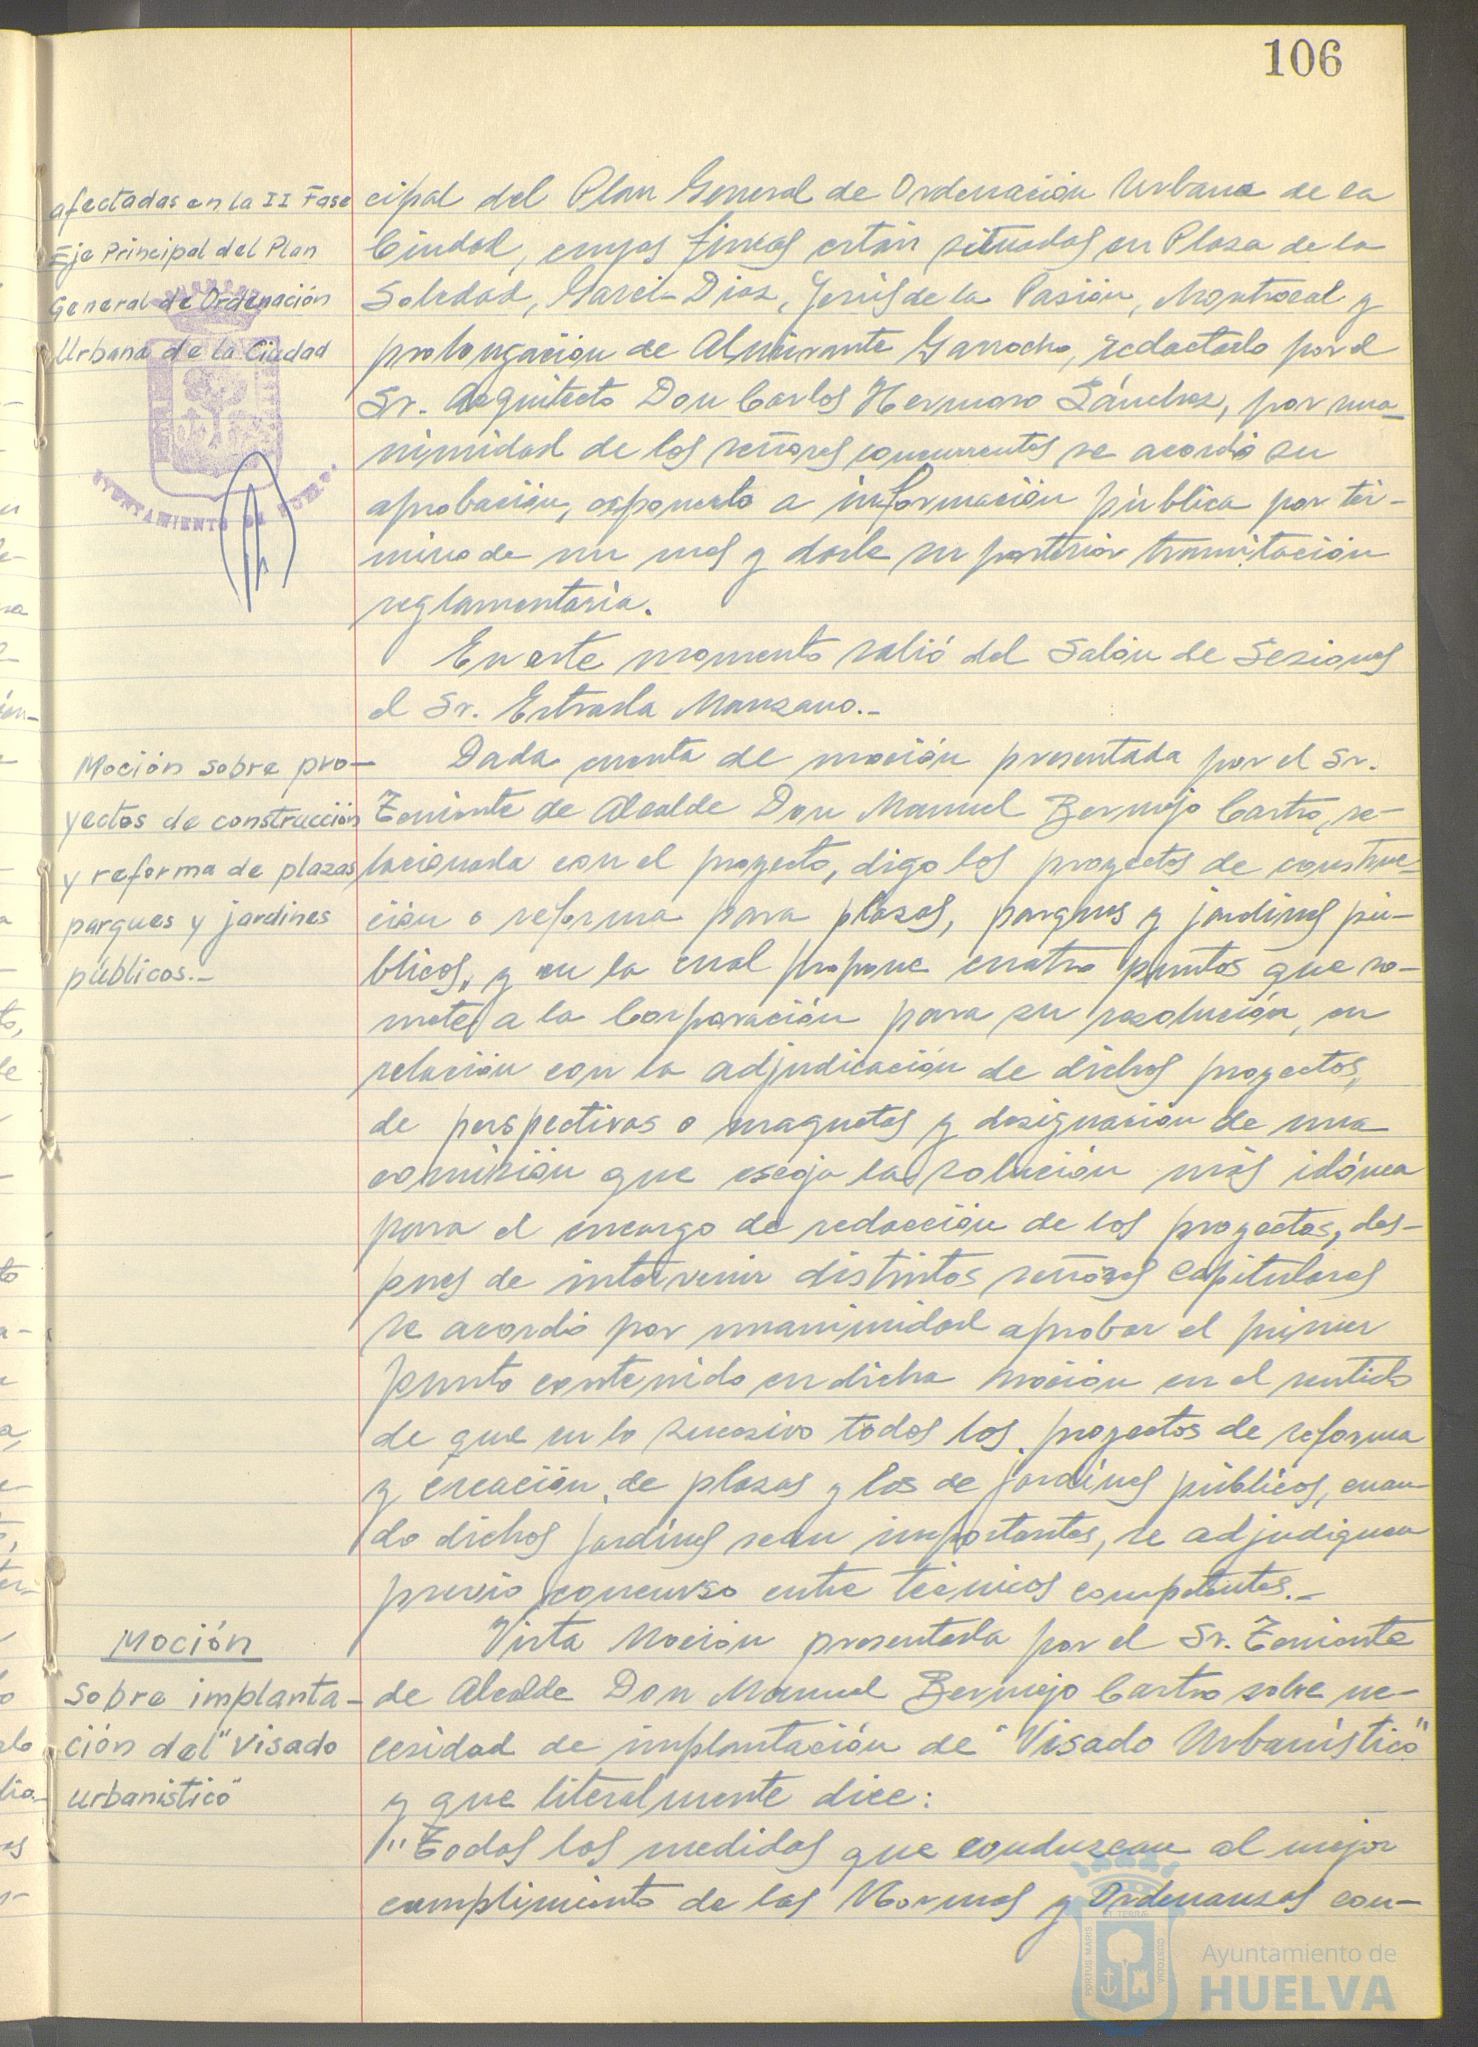 106
afectadas en la II Fase
Eje Principal del Plan
General de Ordenación
Urbana de la Ciudad
AYUNTAMIENTO DE HUELVA
cipal del Plan General de Ordenación Urbana de la
Ciudad, cuyas fincas están situadas en Plaza de la
Soledad, Garci-Diaz, Jesús de la Pasión, Montrocal y
prolongación de Almirante Garrocho, redactado por el
Sr. Arquitecto Don Carlos Hermoso Sánchez, por una-
nimidad de los señores concurrentes se acordó su
aprobación, exponerlo a información pública por tér-
mino de un mes y darle su posterior tramitación
reglamentaria.
En este momento salió del Salón de Sesiones
el Sr. Estrada Manzano.-
Moción sobre pro-
yectos de construcción
y reforma de plazas,
parques y jardines
públicos.-
Dada cuenta de moción presentada por el Sr.
Teniente de Alcalde Don Manuel Bermejo Castro, re-
lacionada con el proyecto, digo los proyectos de construc-
ción o reforma para plazas, parques y jardines pú-
blicos, y en la cual propone cuatro puntos que so-
mete a la Corporación para su resolución, en
relación con la adjudicación de dichos proyectos,
de perspectivas o maquetas y designación de una
comisión que escoja la solución más idónea
para el encargo de redacción de los proyectos, des-
pues de intervenir distintos señores Capitulares
se acordó por unanimidad aprobar el primer
punto contenido en dicha moción en el sentido
de que en lo sucesivo todos los proyectos de reforma
y creación de plazas y los de jardines públicos, cuan-
do dichos jardines sean importantes, se adjudiquen
previo concurso entre técnicos competentes.-
Moción
sobre implanta-
ción del "Visado
urbanistico"
Vista Moción presentada por el Sr. Teniente
de Alcalde Don Manuel Bermejo Castro sobre ne-
cesidad de implantación de "Visado Urbanístico"
y que literalmente dice:
"Todas las medidas que conduzcan al mejor
cumplimiento de las Normas y Ordenanzas con-
PORTUS MARIS
ET TERRAE
CUSTODIA
Ayuntamiento de
HUELVA